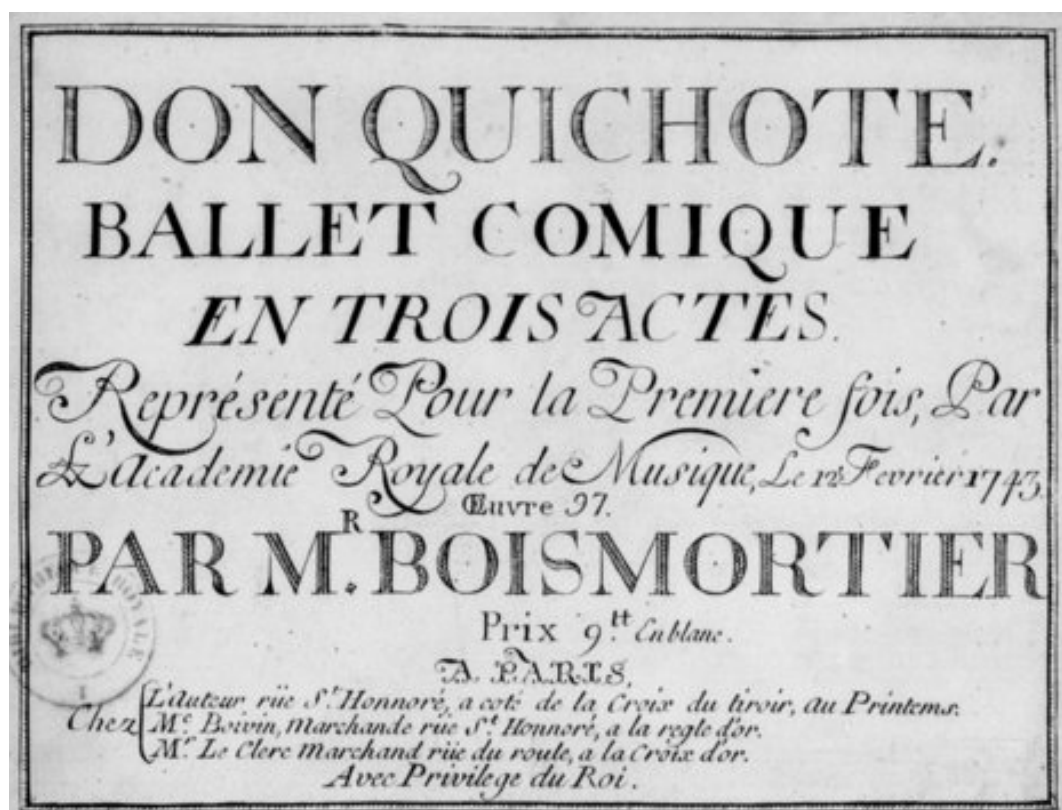 DON QUICHOTE.
BALLET COMIQUE
EN TROIS ACTES.
Représenté Pour la Premiere fois, Par
L'Academie Royale de Musique, Le 12 Fevrier 1743.
Œuvre 97.
PAR MR. BOISMORTIER
Prix 9.tt En blanc.
A PARIS,
Chez
L'Auteur, rüe St. Honnoré, a coté de la Croix du tiroir, au Printems.
Me. Boivin, Marchande rüe St. Honnoré, a la regle d'or.
Mr. Le Clerc Marchand rüe du roule, a la Croix d'or.
Avec Privilege du Roi.